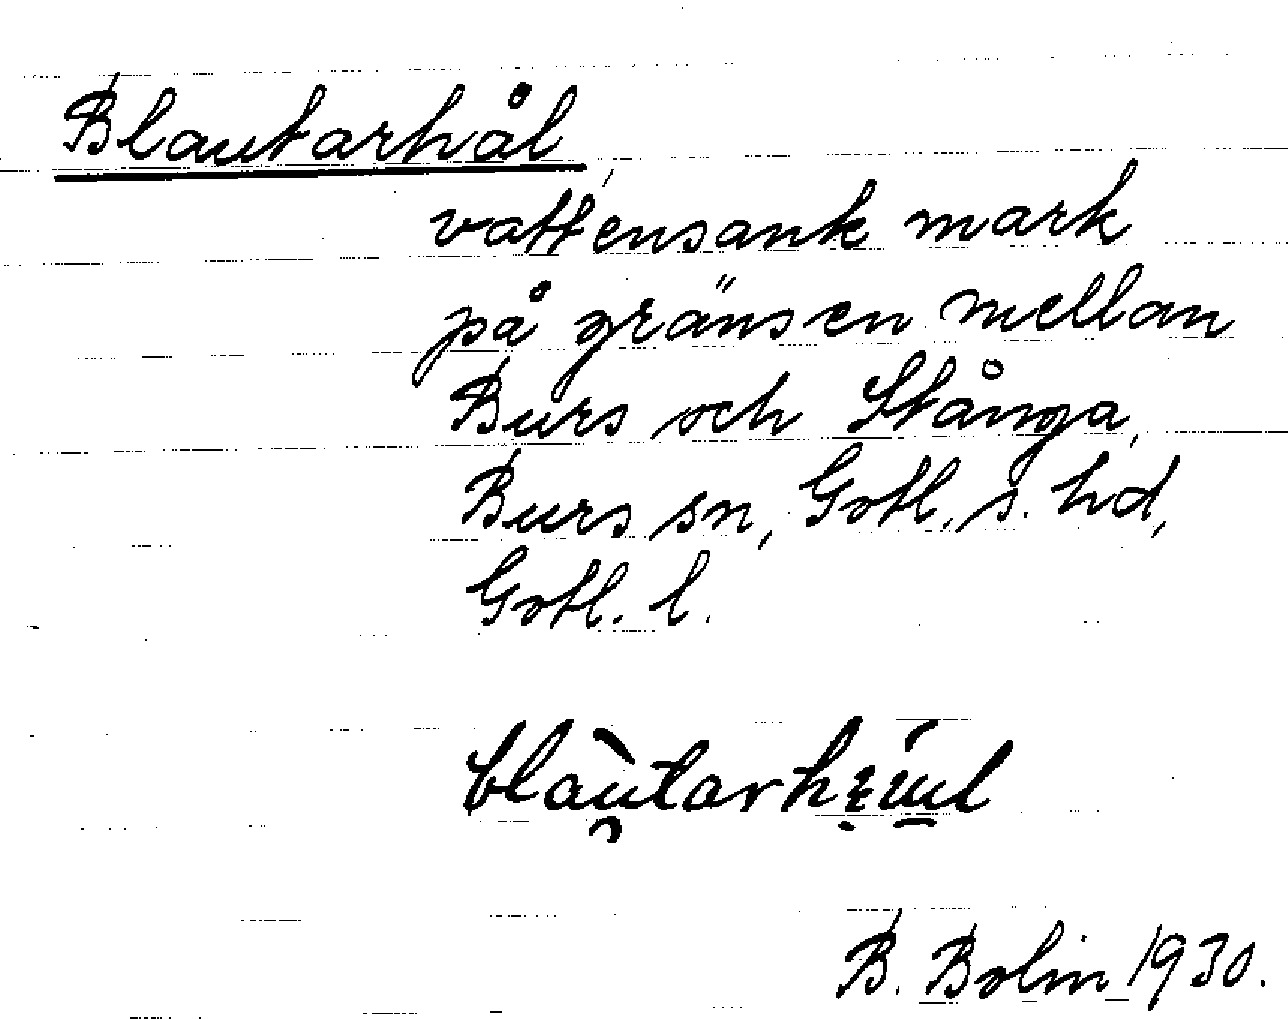 Blautarhål
vattensank mark
på gränsen mellan
Burs och Stånga,
Burs sn, Gotl. s. hd,
Gotl. l.
B. Bolin 1930.